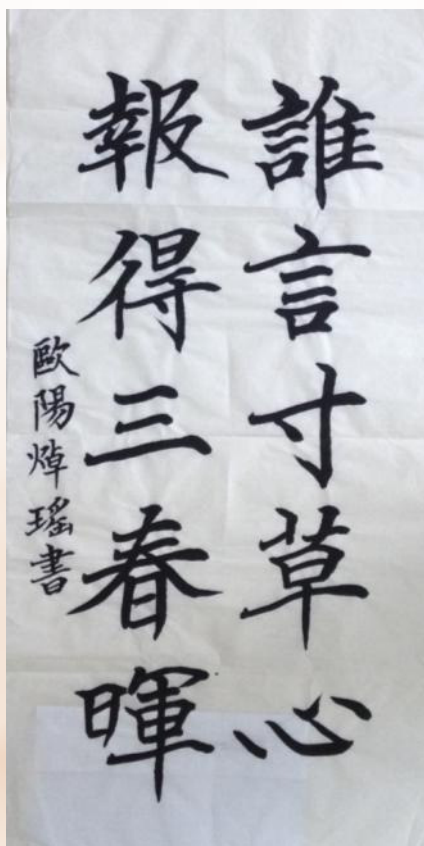 誰言寸草心
報得三春暉
歐陽焯瑤書